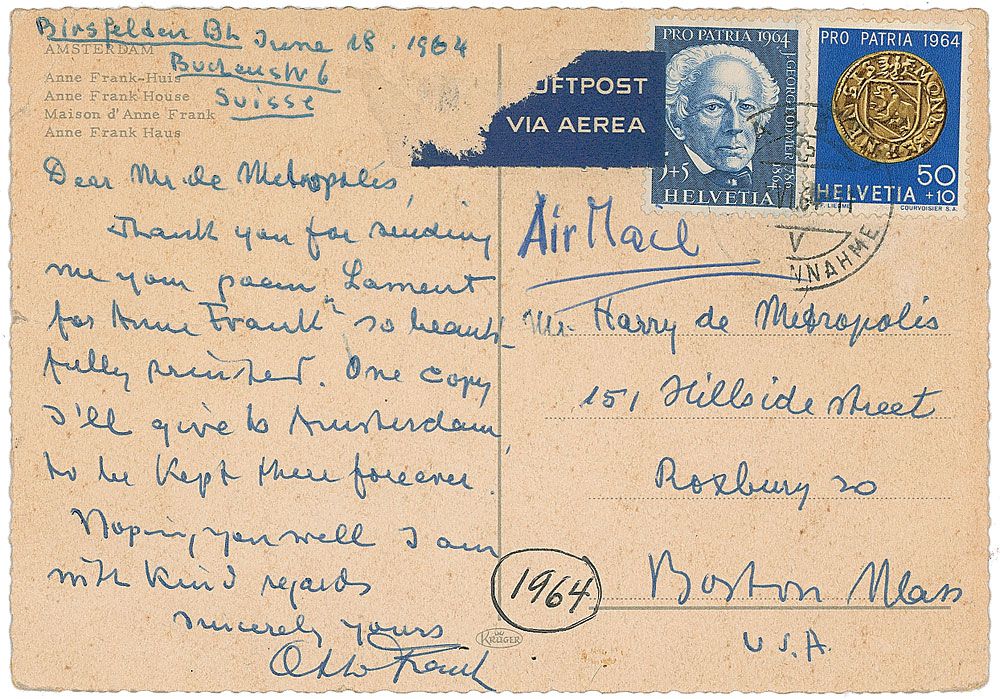 Birsfelden Bh June 18. 1964
Buchenstr 6
Suisse
AMSTERDAM
Anne Frank-Huis
Anne Frank House
Maison d'Anne Frank
Anne Frank Haus
Dear Mr. de Metropolis,
Thank you for sending
me your poem "Lament
for Anne Frank" so beauti-
fully printed. One copy
I'll give to Amsterdam,
to be kept there forever.
Hoping you well I am
with kind regards
Sincerely yours
Otto Frank
UFTPOST
VIA AEREA
PRO PATRIA 1964
J. GEORG BODMER 1786 1864
5+5
HELVETIA
PRO PATRIA 1964
50
HELVETIA +10
COURVOISIER S.A.
V
NNAHME
Air Mail
Mr. Harry de Metropolis
151 Hillside street
Roxbury 20
Boston Mass
U.S.A.
1964
KRÜGER